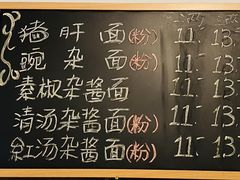 二两 三两
猪肝面(粉) 11.- 13.
豌杂面(粉) 11.- 13.
素椒杂酱面 11.- 13.
清汤杂酱面(粉) 11.- 13.
红汤杂酱面(粉) 11.- 13.